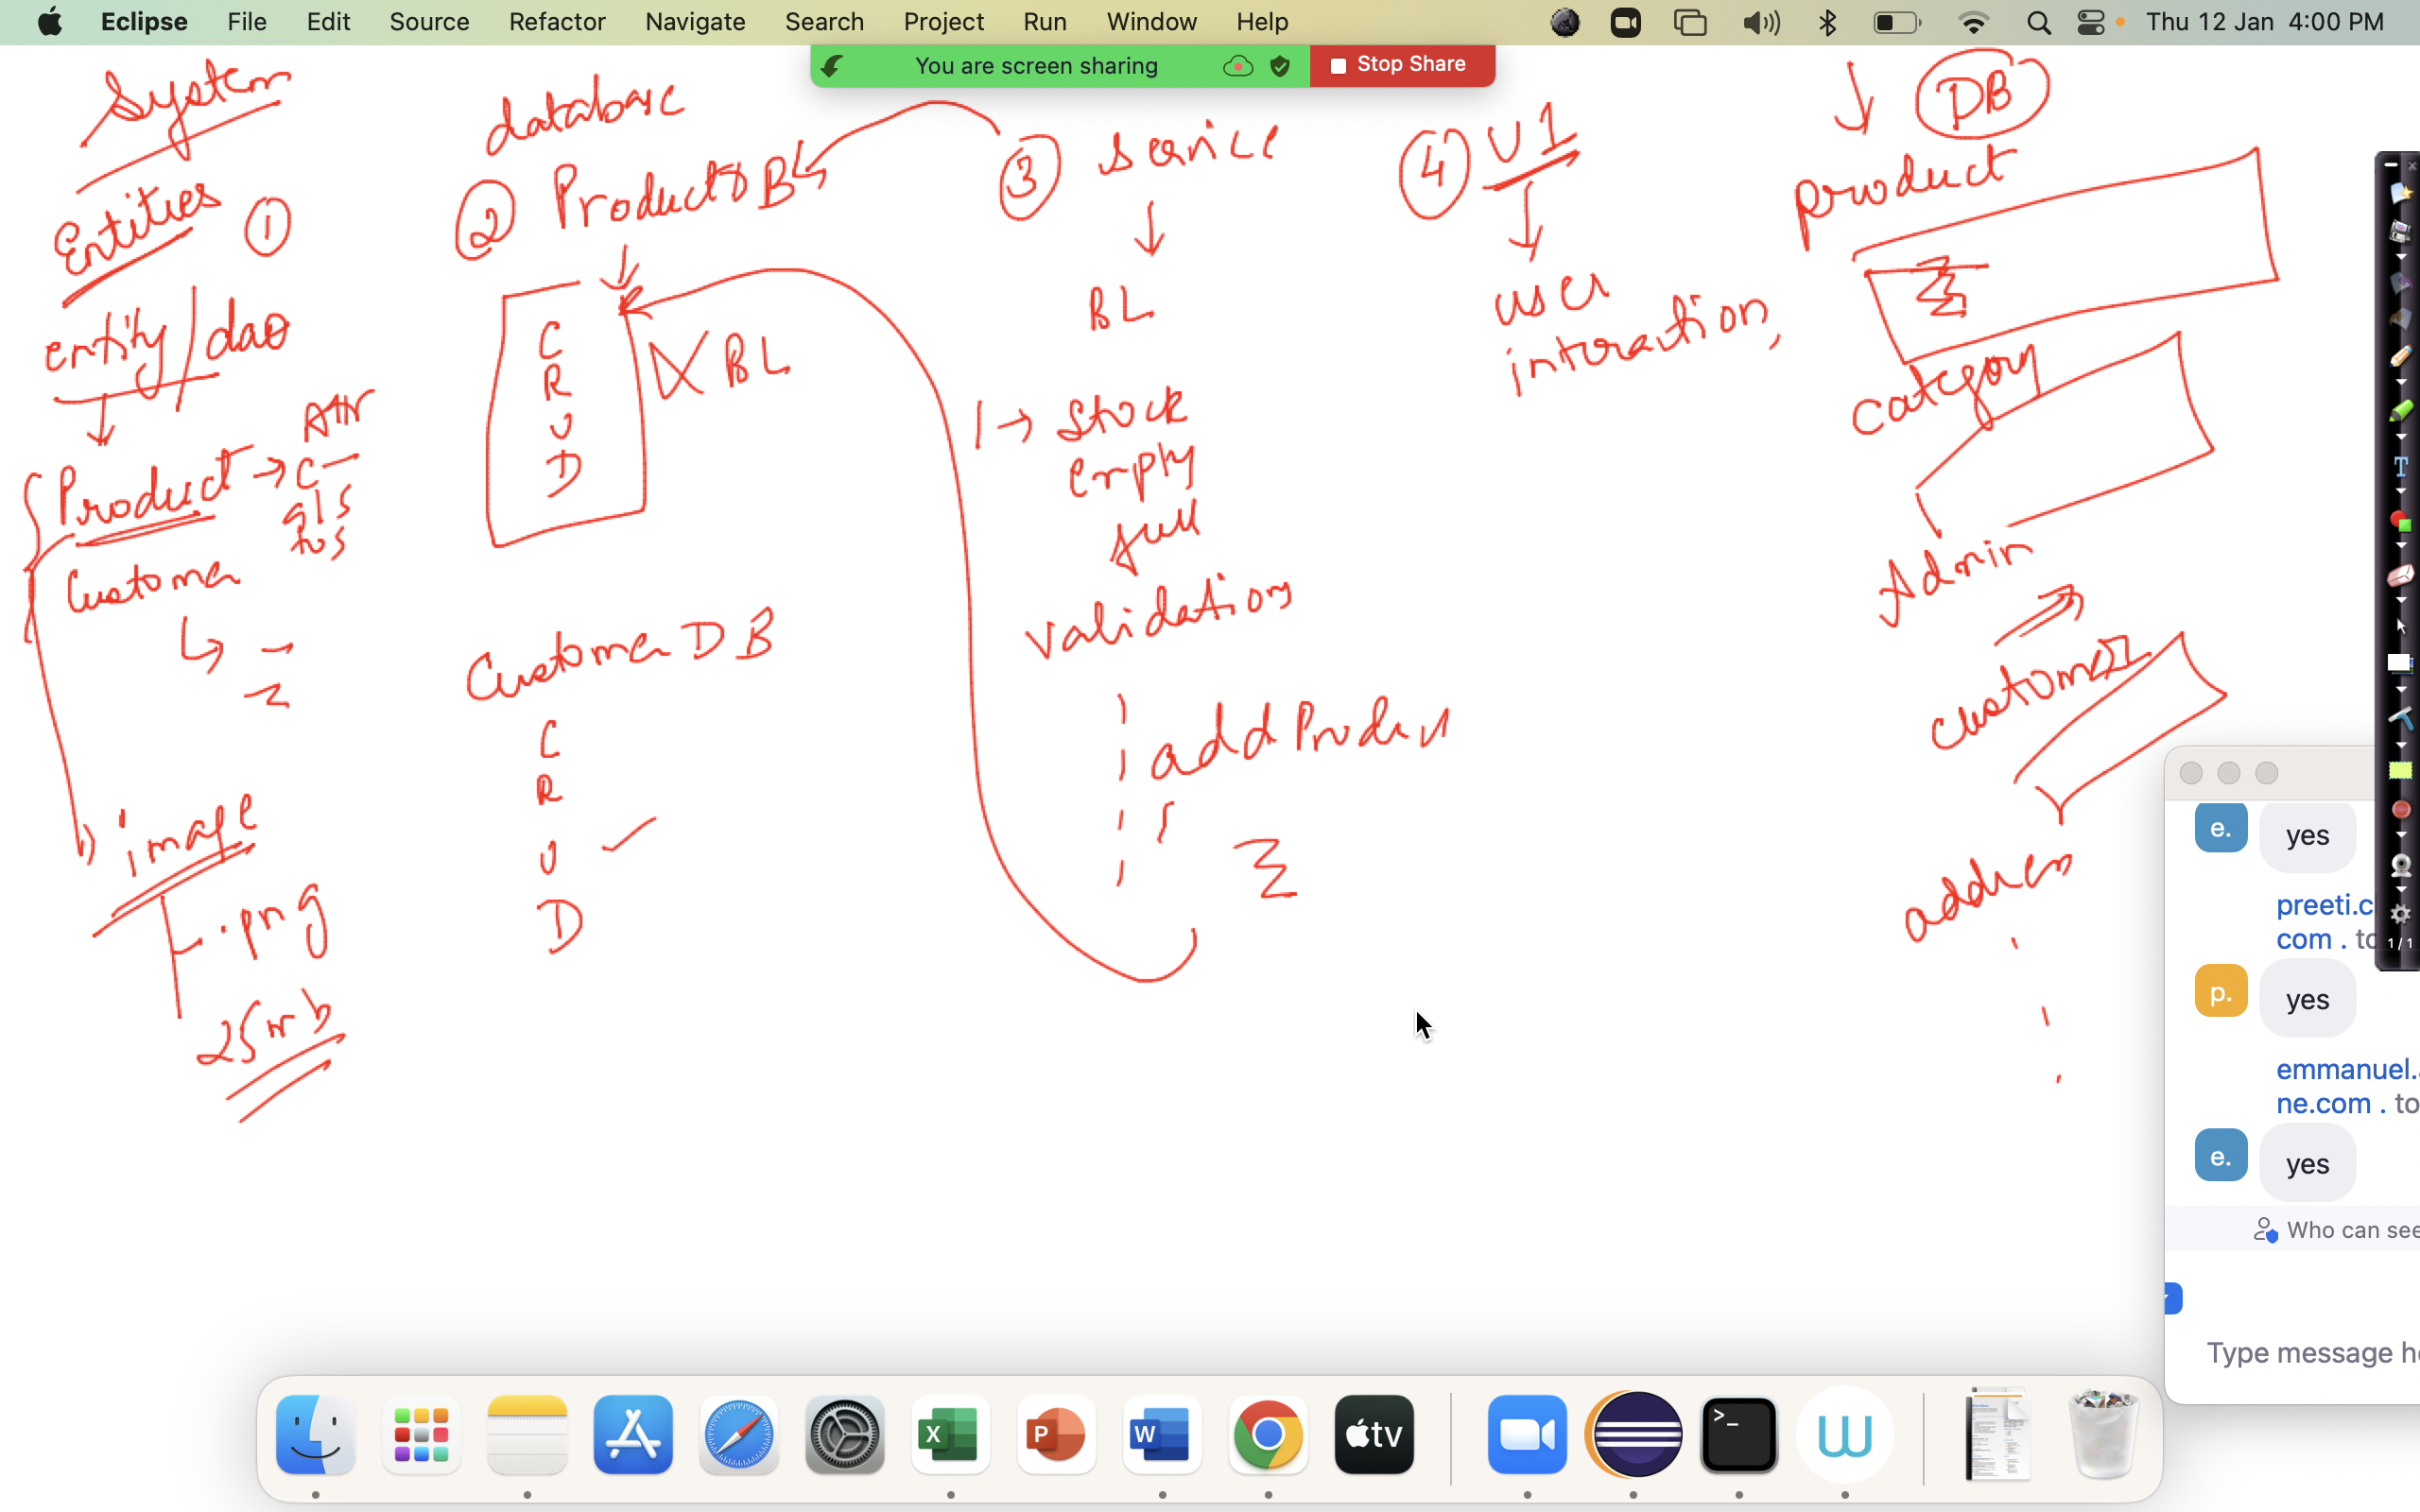 Eclipse File Edit Source Refactor Navigate Search Project Run Window Help Thu 12 Jan 4:00 PM
You are screen sharing Stop Share
System
Entities ①
entity/dao
Product → C
Attr
g/s
tos
Customer
image
.png
25mb
database
② Products B
C
R
U
D
BL
Customer DB
C
R
U
D
③ Service
BL
1 → Stock
empty
full
validations
addProduct
④ UI
user
interaction,
DB
product
Category
Admin
customer
address
e. yes
preeti.c
com . to
1/1
p. yes
emmanuel.
ne.com . to
e. yes
Who can see
Type message he
X P W tv >_ W